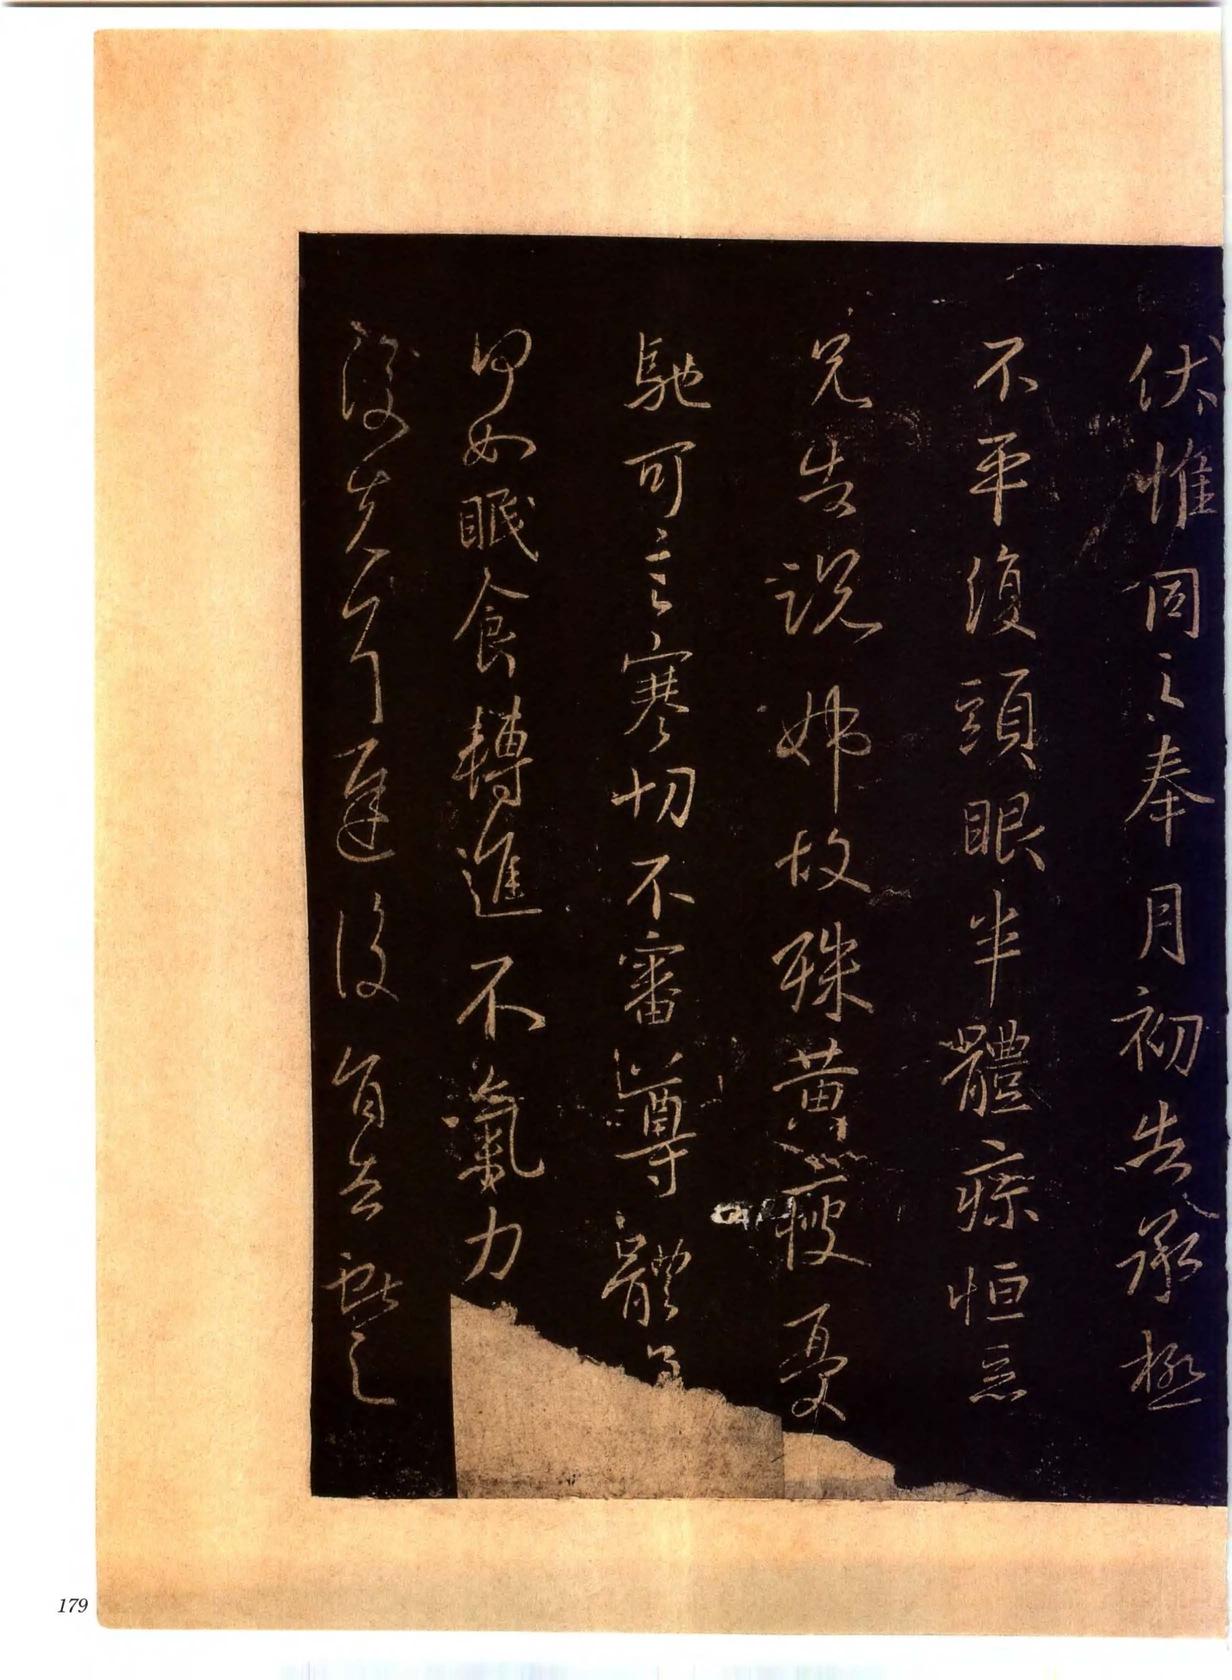 伏惟同之奉月初告承極
不平復頭眼半體疼恒惡
兄告說姊故殊黃瘦憂
馳可言寒切不審尊體
何如眠食轉進不氣力
復遲
179